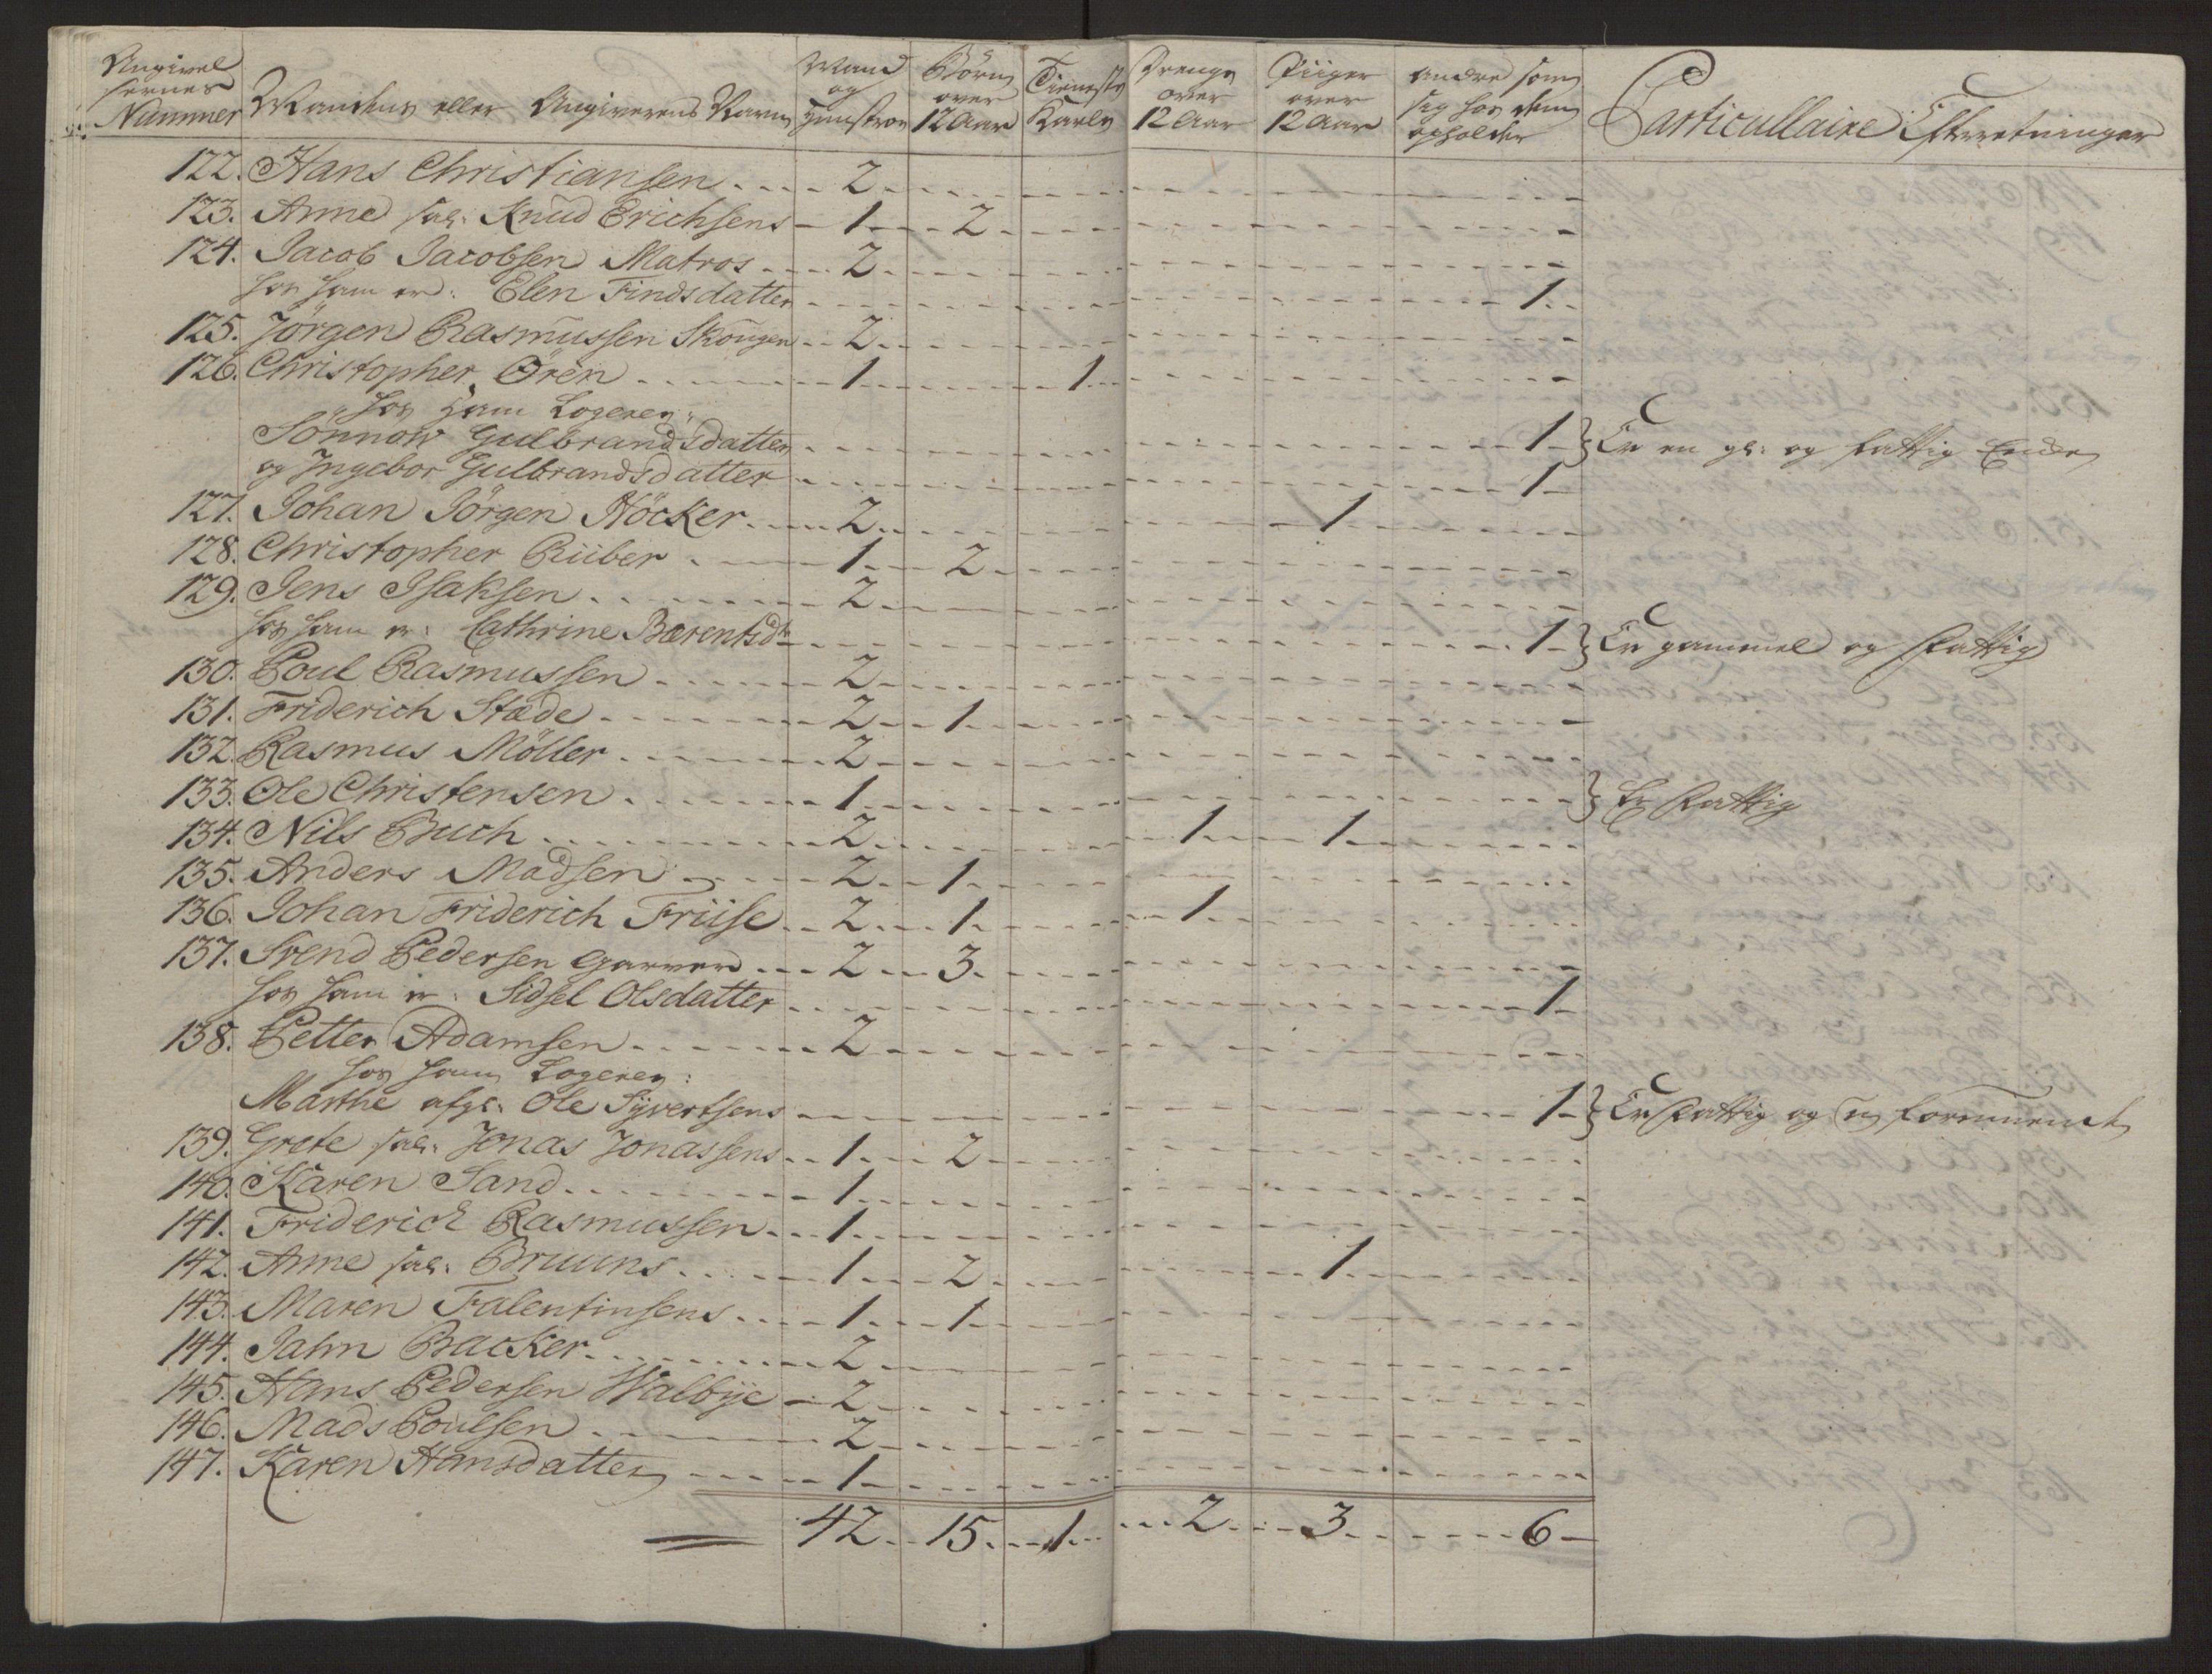 Angivel
sernes
Nummer Mandens eller Angiverens Navn Mand og Hustroe Børn over 12 Aar Tieneste Karle Drenge over 12 Aar Piiger over 12 Aar Andre som sig hos dem opholder Particullaire Efterretninger
122. Hans Christiansen 2
123. Anne sal: Knud Erichsens 1 2
124. Jacob Jacobsen Matros 2
hos ham er: Elen Findsdatter 1
125. Jörgen Rasmussen Skougen 2
126. Christopher Ören 1 1
hos ham Logerer:
Sönnow Gulbrandsdatter 1 Er en gl: og fattig Encke
og Ingebor Gulbrandsdatter 1
127. Johan Jörgen Höcker 2 1
128. Christopher Riiber 1 2
129. Jens Isaksen 2
hos ham er: Cathrine Bærentsdr 1 Er gammel og fattig
130. Poul Rasmussen 2
131. Friderich Stæde 2 1
132. Rasmus Möller 2
133. Ole Christensen 1 Er fattig
134. Nils Buch 2 1 1
135. Anders Madsen 2 1
136. Johan Friderich Friise 2 1 1
137. Svend Pedersen Garver 2 3
hos ham er: Sidsel Olsdatter 1
138. Petter Adamsen 2
hos ham Logerer:
Marthe afgl: Ole Syvertsens 1 Er fattig og
139. Grete sal: Jonas Jonassens 1 2
140. Karen Sand 1
141. Friderick Rasmussen 1
142. Anne sal: Bruuns 1 2 1
143. Maren Falentinsens 1 1
144. Jahn Backer 2
145. Hans Pedersen Walbye 2
146. Mads Poulsen 2
147. Karen Hansdatter 1
42 15 1 2 3 6